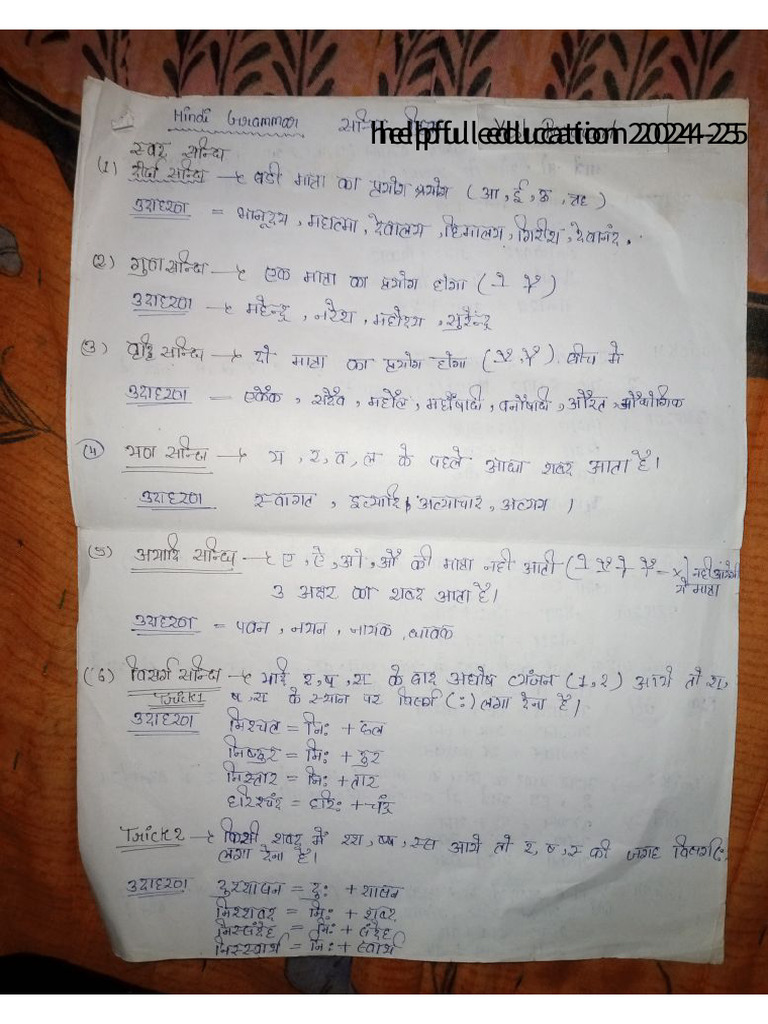 Hindi Grammar सन्धि
helpfull education 2024-25
स्वर सन्धि
(1) दीर्घ सन्धि → बडी मात्रा का प्रयोग प्रयोग (आ, ई, ऊ, ऋ)
उदाहरण = भानूदय, महात्मा, देवालय, हिमालय, गिरीश, देवानंद.
(2) गुण सन्धि → एक मात्रा का प्रयोग होगा (े ो)
उदाहरण → महेन्द्र, नरेश, महोदय, सुरेन्द्र
(3) वृद्धि सन्धि → दो मात्रा का प्रयोग होगा (ै ौ). बीच मे
उदाहरण = एकैक, सदैव, महौज, महौषधी, वनौषधी,
(4) यण सन्धि → य, र, व, ल के पहले आधा शब्द आता है।
उदाहरण स्वागत, इत्यादि, अत्याचार,
(5) अयादि सन्धि → ए, ऐ, ओ, औ की मात्रा नही आती (े ै ो ौ - x) नही आयेगी
ये मात्रा
3 अक्षर का शब्द आता है।
उदाहरण = पवन, नयन, नायक, धावक
(6) विसर्ग सन्धि → यदि श, ष, स के बाद अघोष व्यंजन (1, 2) आये तो श,
Trick1 ष, स के स्थान पर विसर्ग (:) लगा देना है।
उदाहरण निश्चल = नि: + चल
निष्ठुर = नि: + ठुर
निस्तार = नि: + तार
हरिश्चंद्र = हरि: + चंद्र
Trick2 → किसी शब्द में श्श, ष्ष, स्स आये तो श, ष, स की जगह विसर्ग:
लगा देना है।
उदाहरण दुश्शासन = दु: + शासन
निश्शब्द = नि: + शब्द
निस्संदेह = नि: + संदेह
निस्स्वार्थ = नि: + स्वार्थ